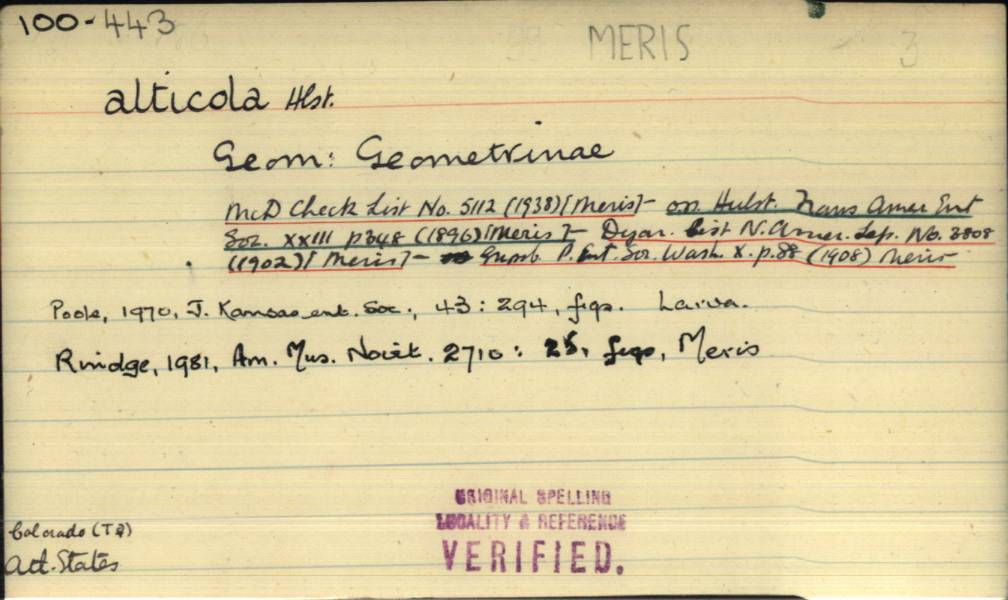 100-443
MERIS 3
alticola Hlst.
Geom: Geometrinae
McD Check List No. 5112 (1938) [Meris] - on Hulst. Trans Amer Ent
Soc. XXIII p 348 (1896) [Meris] - Dyar. List N. Amer. Lep. No. 3808
(1902) [Meris] - Grossb. P. Ent. Soc. Wash. X. p. 88 (1908) Meris
Poole, 1970, J. Kansas ent. Soc., 43: 294, figs. Larva.
Rindge, 1981, Am. Mus. Novit. 2710: 25, figs, Meris
ORIGINAL SPELLING
LOCALITY & REFERENCE
VERIFIED.
Colorado (T♀)
Atl. States